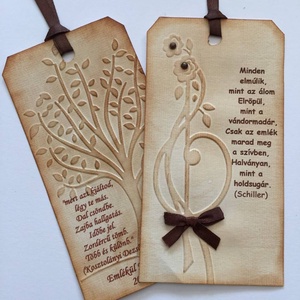 "mert azt kiáltod,
úgy te más.
Dal csöndbe.
Zajba hallgatás.
Időbe jel.
Zordércű tömb.
Több és különb."
(Kosztolányi Dezső
Emlékül
Minden
elmúlik,
mint az álom
Elröpül,
mint a
vándormadár,
Csak az emlék
marad meg
a szívben,
Halványan,
mint a
holdsugár.
(Schiller)